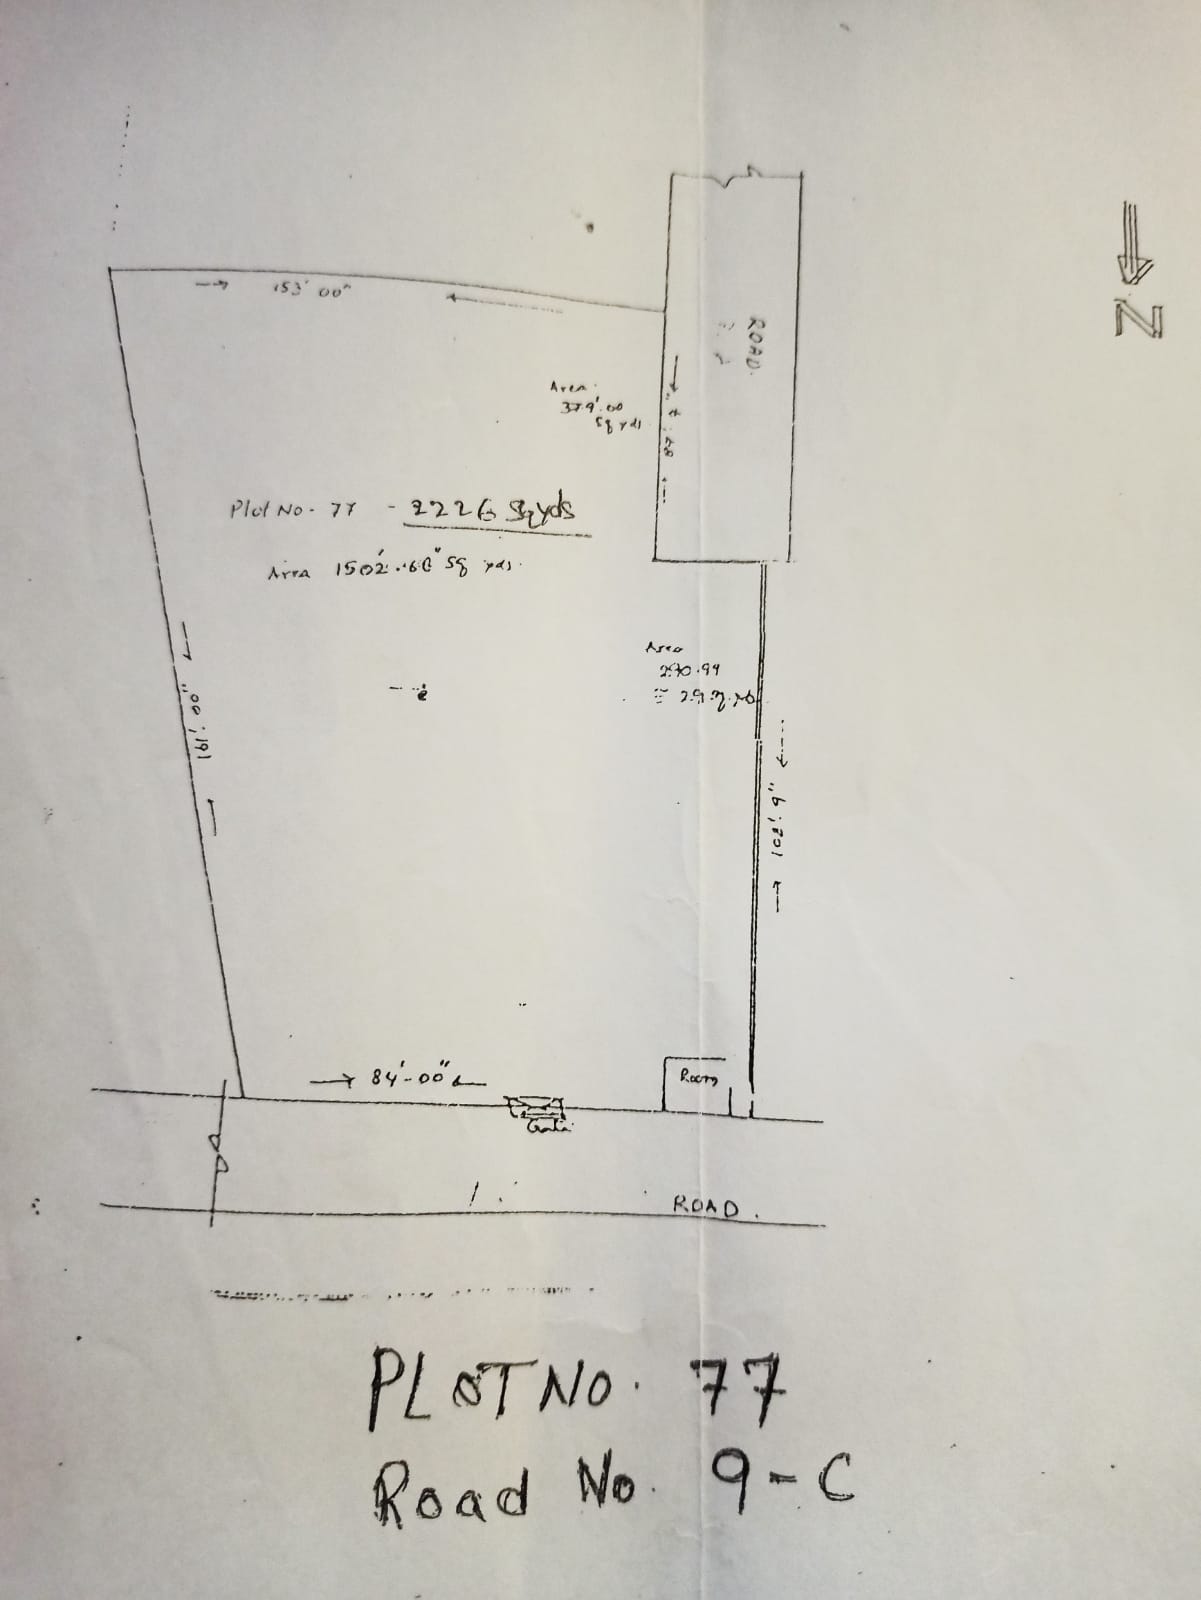 153' 00"
ROAD.
Area.
379'.00
Sq yds
Plot No. 77 - 2226 Sqyds
Area 1502'.66" Sq yds.
Area
270.99
161'.00"
107'.9"
84'-00"
Room
Gate
ROAD.
PLOT NO. 77
Road No. 9-C
N